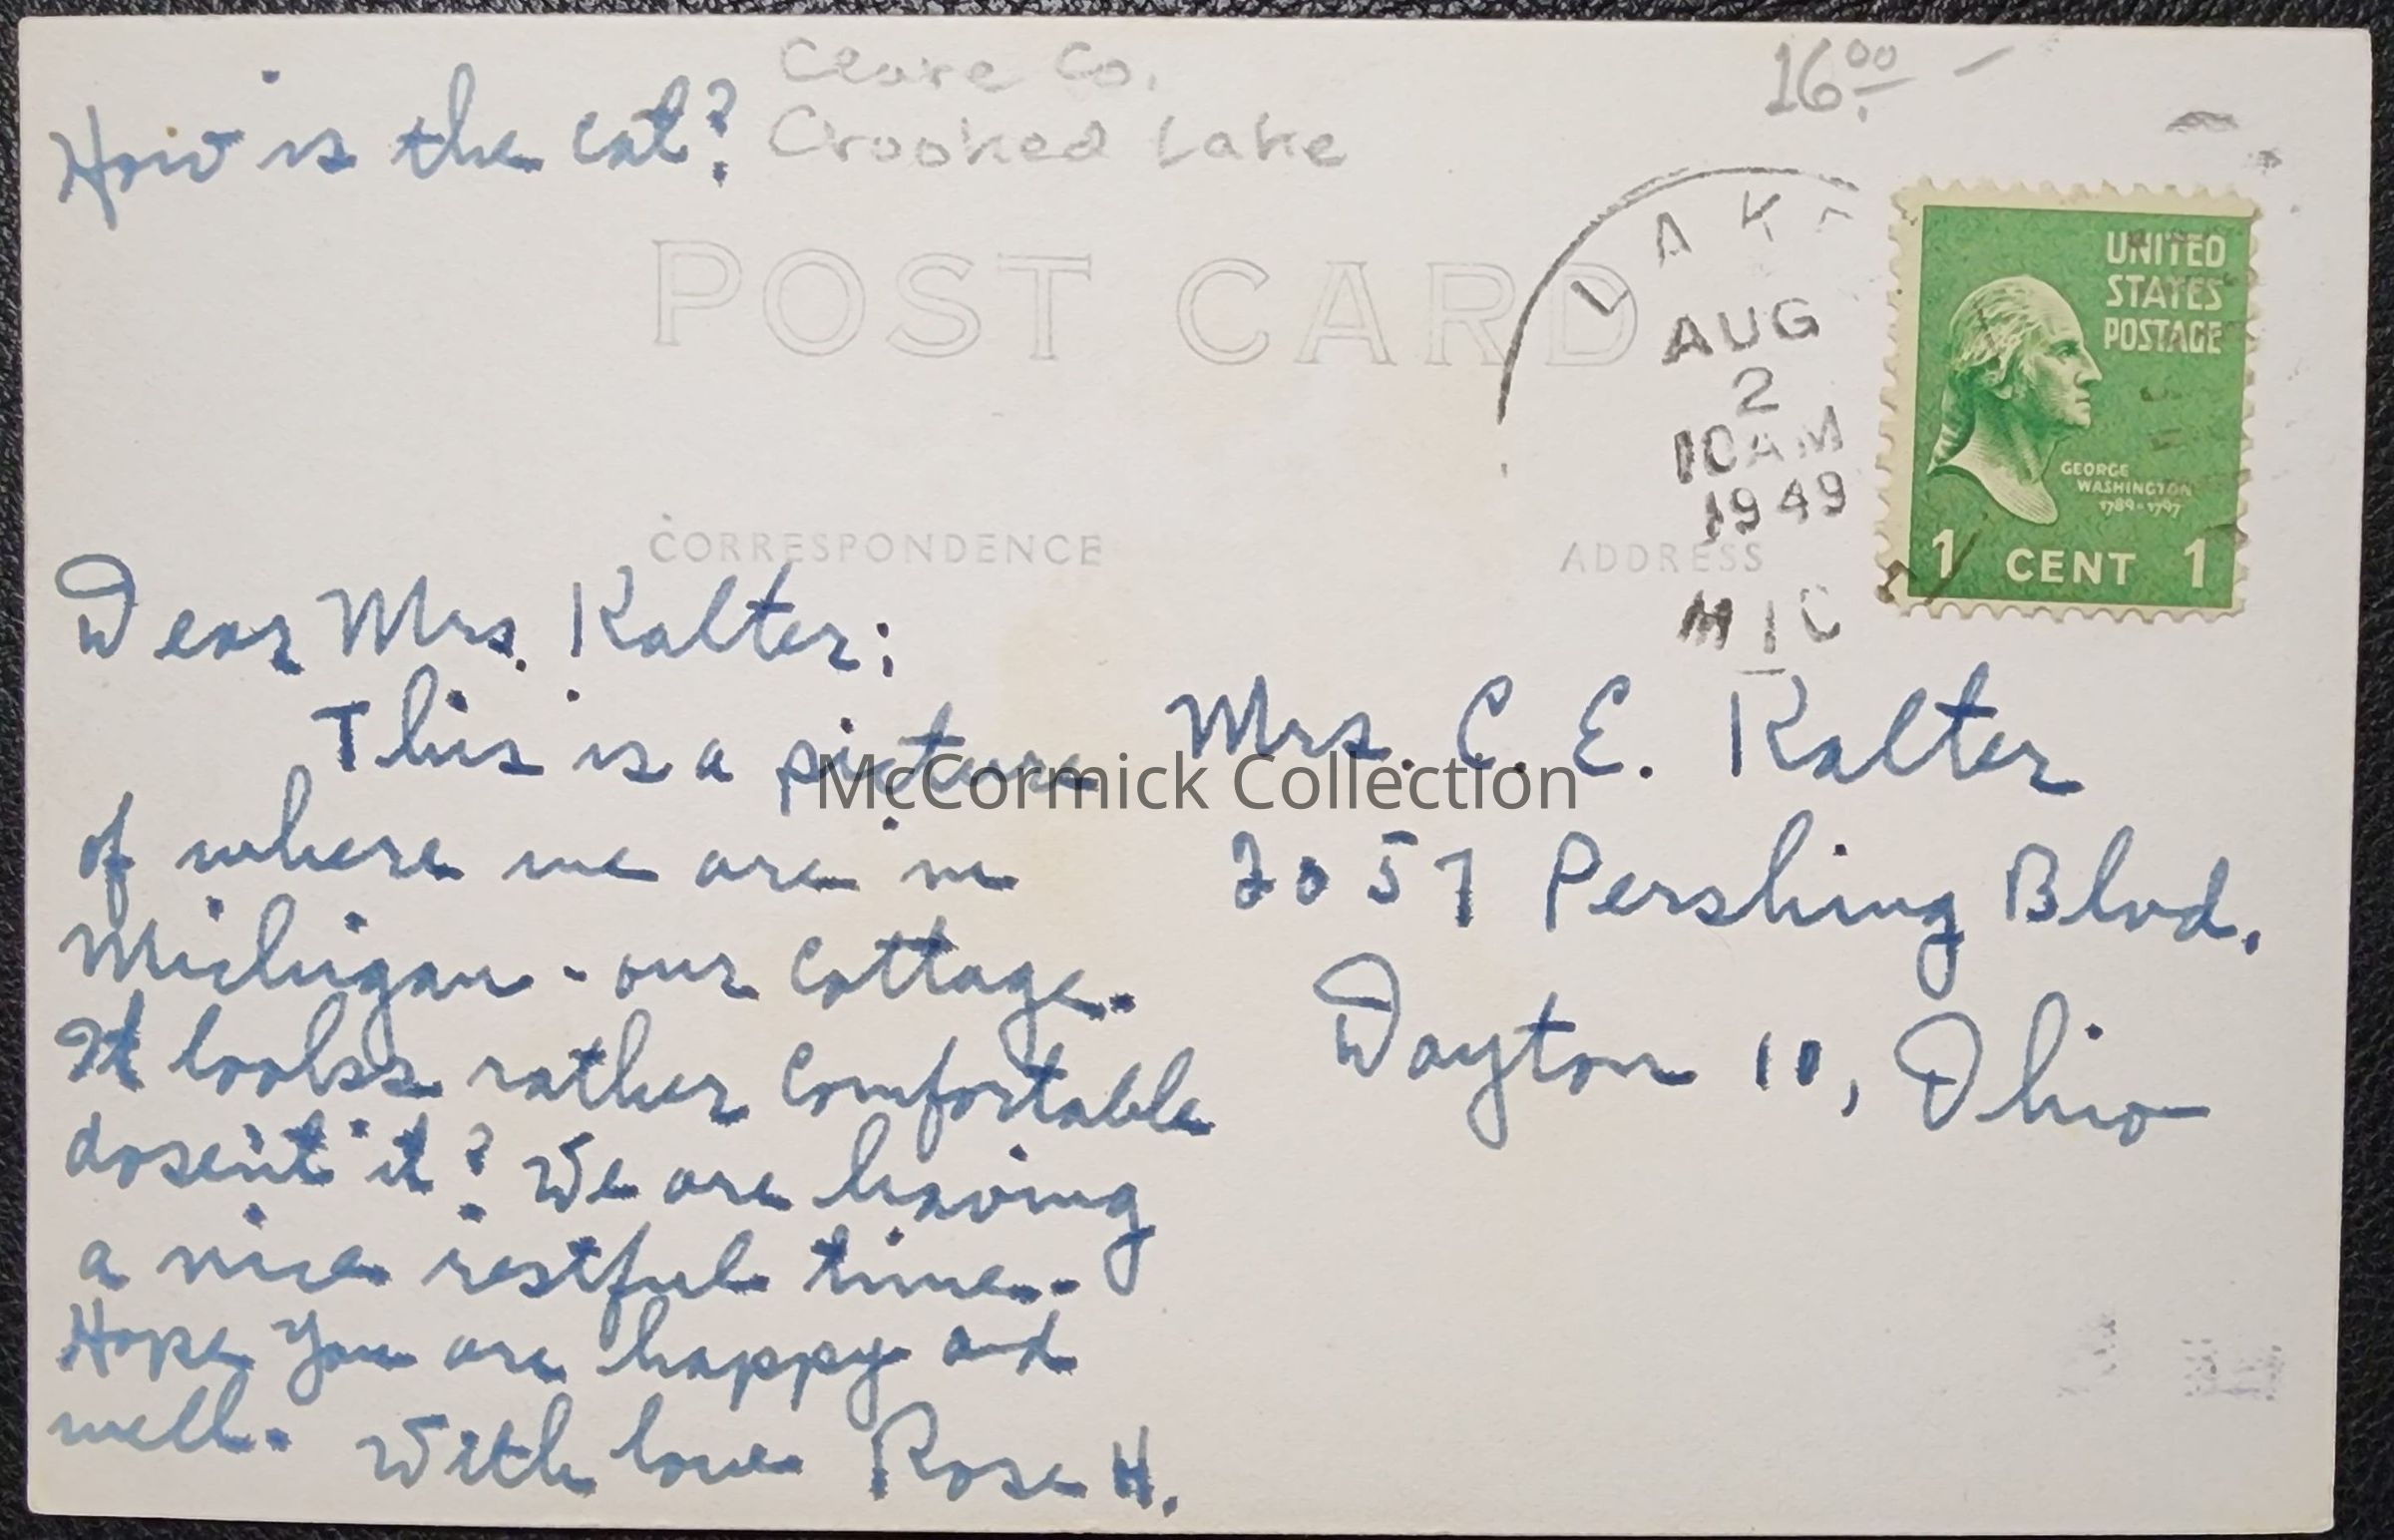 How is the cat?
Clare Co.
Crooked Lake
16.00
POST CARD
LAKE
AUG
2
10AM
1949
MIC
UNITED
STATES
POSTAGE
GEORGE
WASHINGTON
1789-1797
1 CENT 1
CORRESPONDENCE
ADDRESS
Dear Mrs. Kalter;
This is a picture
of where we are in
Michigan - our cottage.
It looks rather comfortable
dosen't it? We are having
a nice restful time.
Hope you are happy and
well. With love Rose H.
Mrs. C. E. Kalter
2057 Pershing Blvd.
Dayton 10, Ohio
McCormick Collection